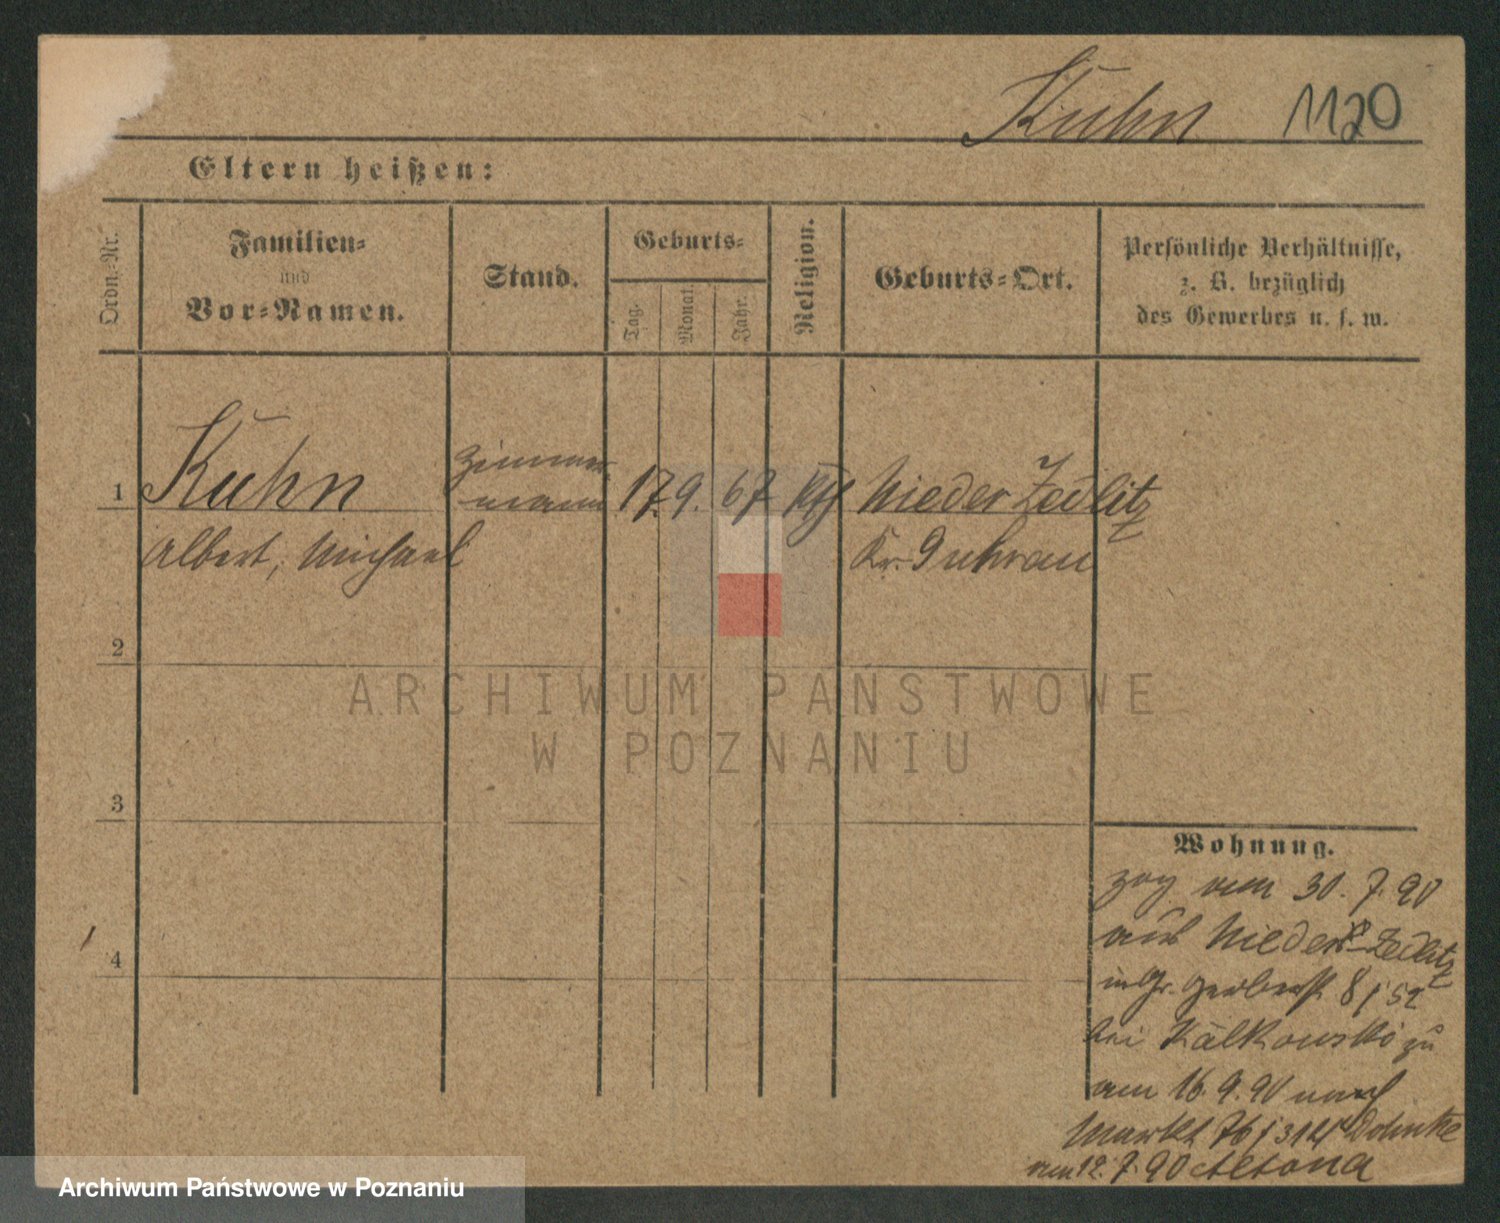 Kuhn 1120
Eltern heißen:
Ordn.-Nr.
Familien-
und
Vor-Namen.
Stand.
Geburts-
Tag.
Monat.
Jahr.
Religion.
Geburts-Ort.
Persönliche Verhältnisse,
z. B. bezüglich
des Gewerbes u. s. w.
1 Kuhn Zimmer- 17. 9. 67 Nieder Zedlitz
mann
Albert, Michael Kr. Guhrau
2
ARCHIWUM PAŃSTWOWE
W POZNANIU
3
Wohnung.
zog am 30. 7. 90
aus Nieder-Zedlitz
in Gr. Gerberst. 8 / 52
bei Kalkowski zu
4
am 16. 9. 90 nach
Markt 76 / 314
am 12. 7. 90 Altona
Archiwum Państwowe w Poznaniu